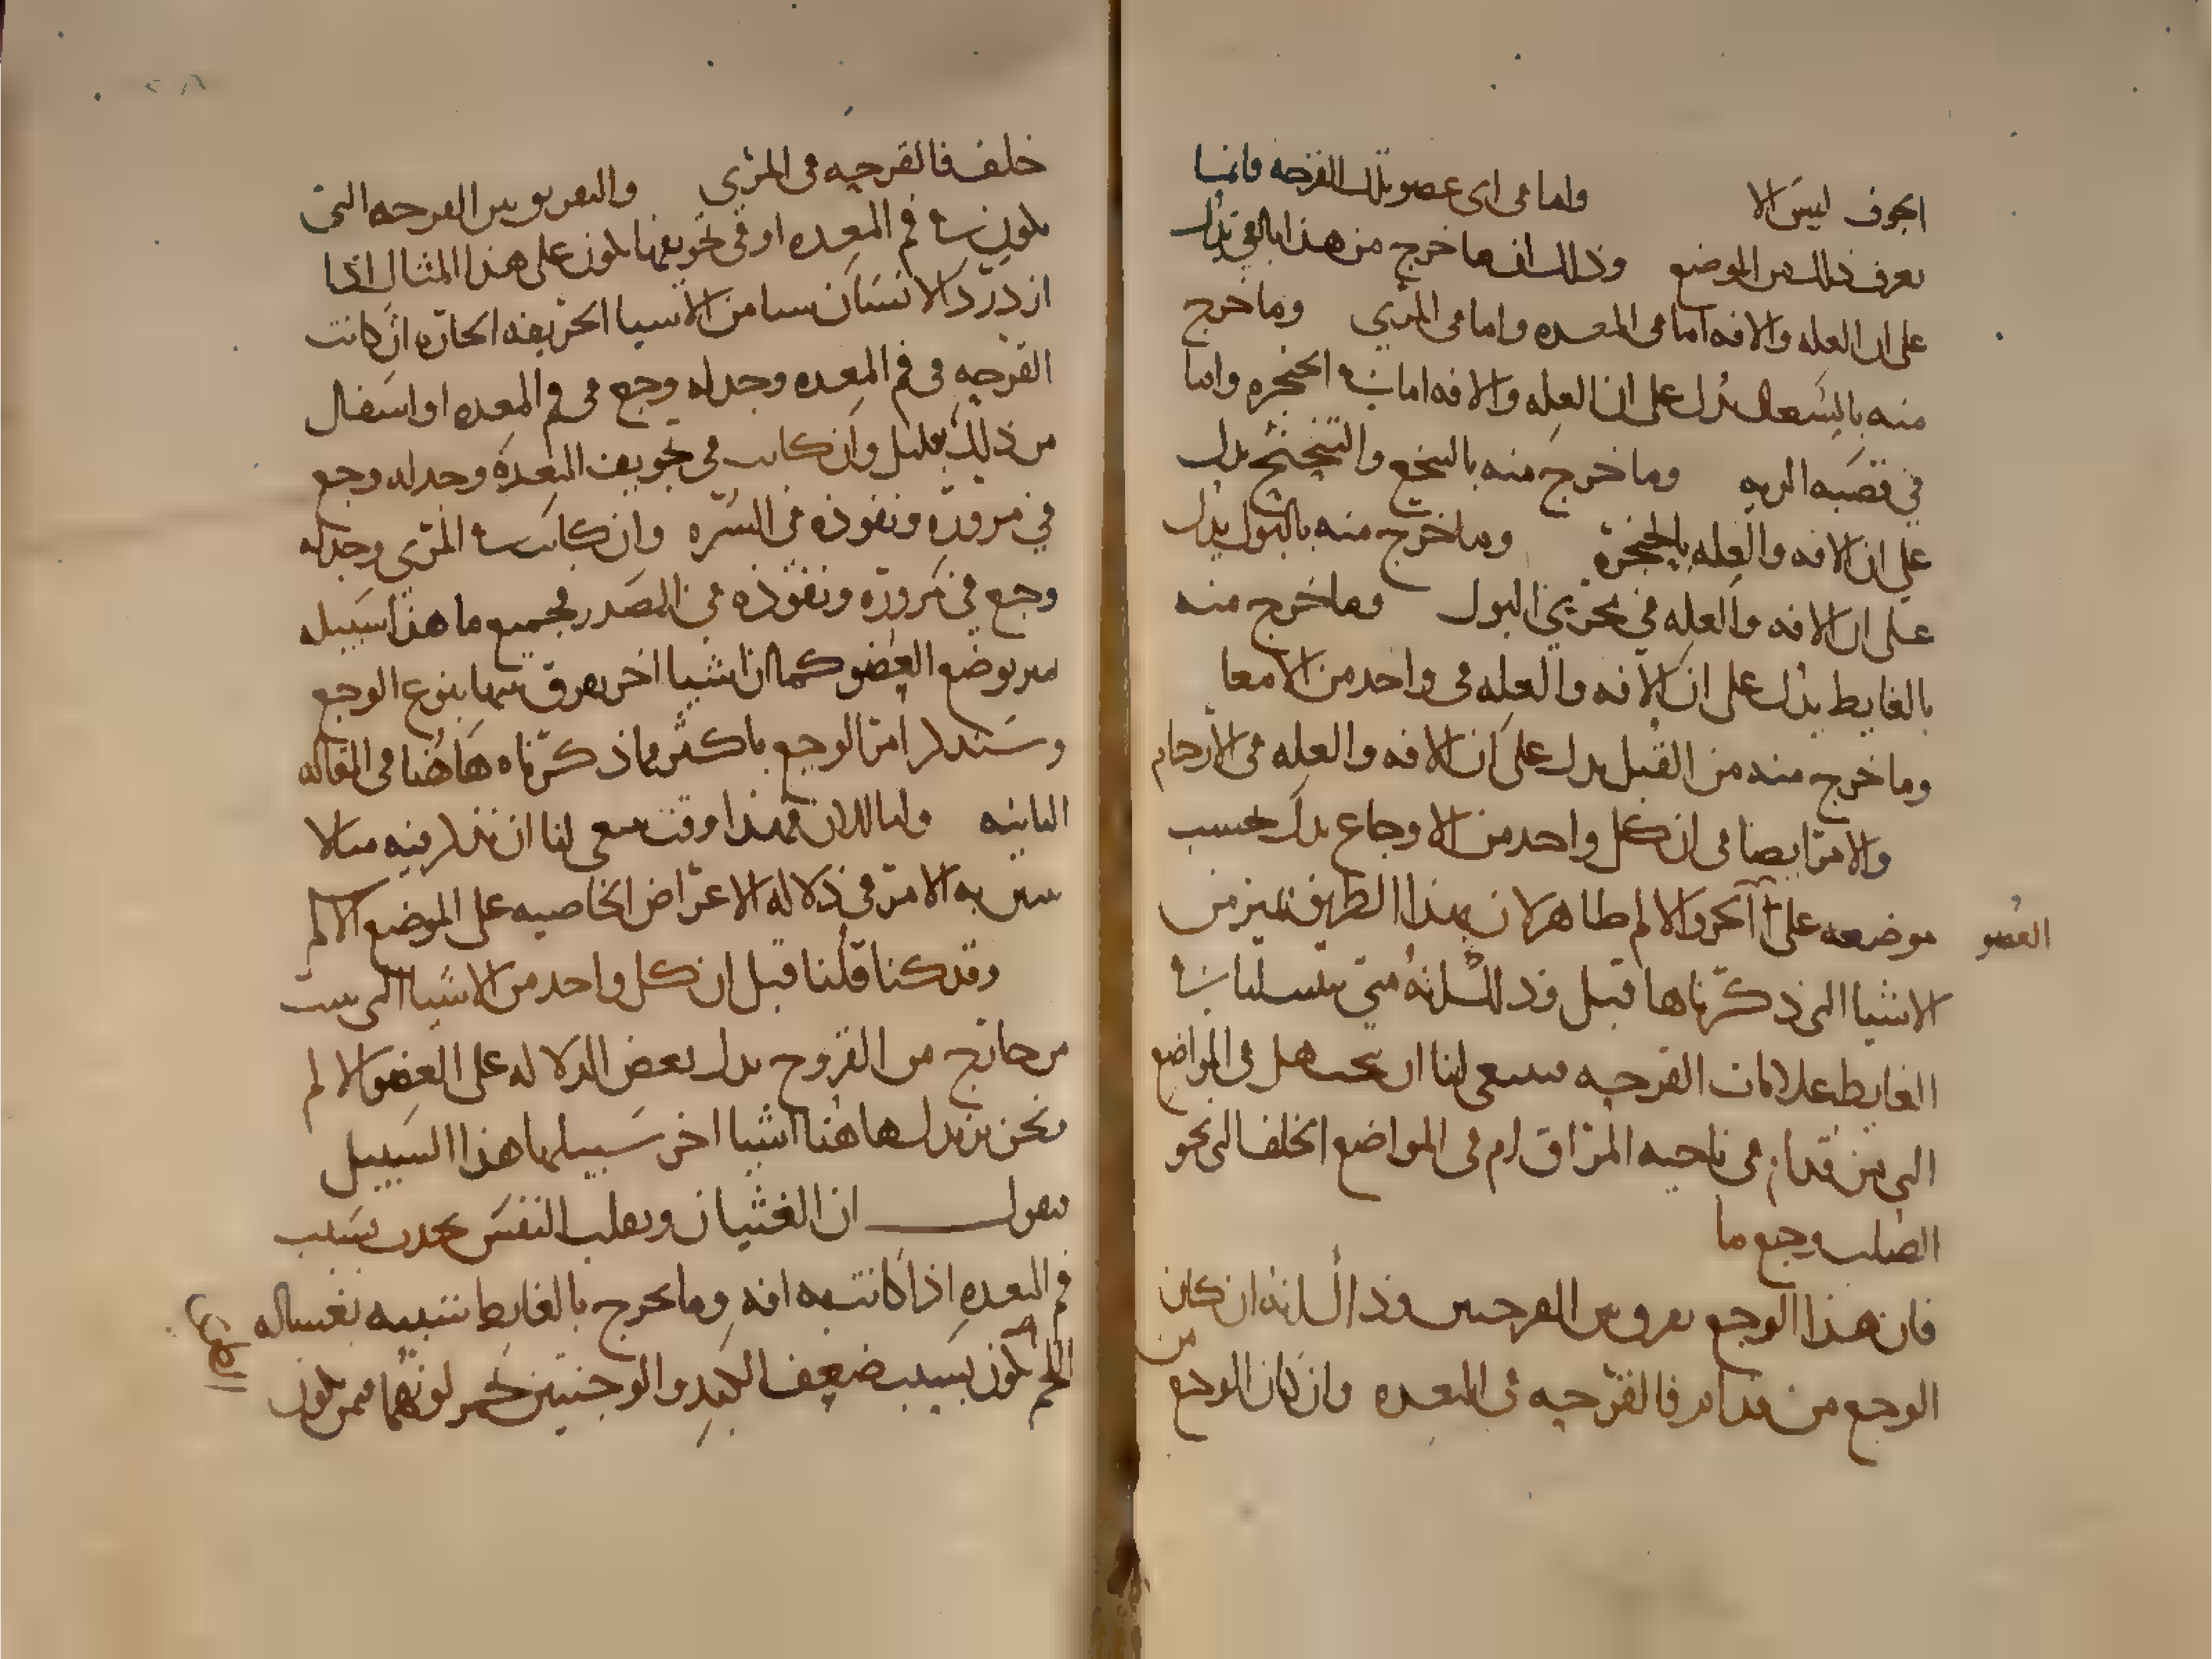 اجوف ليس الا واما فى اى عضو تلك القرحه فانما
يعرف ذلك من الموضع وذلك ان ما خرج من هذا بالقى يدل
على ان العله والافه اما فى المعده واما فى المرى وما خرج
منه بالسعال يدل على ان العله والافه اما فى الحنجره واما
في قصبه الريه وما خرج منه بالتنخع والتنحنح يدل
على ان الافه والعله بالحنجرة وما خرج منه بالبول يدل
على ان الافه والعله في مجرى البول وما خرج منه
بالغايط يدل على ان الافه والعله فى واحد من الامعا
وما خرج منه من القبل يدل على ان الافه والعله فى الارحام
والامر ايضا فى ان كل واحد من الاوجاع يدل بحسب
موضعه على الالم ظاهر لان بهذا الطريق نميز من
العضو
الاشيا التى ذكرناها قبل وذلك انه متى تبينت لنا فى
الغايط علامات القرحه فينبغى لنا ان نبحث هل فى المواضع
التى من قدام فى ناحيه المراق ام فى المواضع الخلف التى نحو
الصلب وجع ما
فان هذا الوجع يفرق بين القرحتين وذاك انه ان كان
الوجع من قدام فالقرحه فى المعده وان كان الوجع من
خلف فالقرحه فى المرى والتفريق بين القرحه التى
تكون فى فم المعده او فى تجويفها يكون على هذا المثال اذا
ازدرد الانسان شيا من الاشيا الحريفه الحاره ان كانت
القرحه فى فم المعده وجد له وجع فى فم المعده او اسفل
من ذلك بقليل وان كانت فى تجويف المعدة وجد له وجع
في مروره ونفوذه فى السره وان كانت فى المرى وجد له
وجع في مروره ونفوذه فى الصدر فجميع ما هذا سبيله
يميز بوضع العضو كما ان اشيا اخر يفرق بينها بنوع الوجع
وسنذكر امر الوجع باكثر مما ذكرناه هاهنا فى المقاله
الثانيه واما الان فهذا وقت ينبغى لنا ان نذكر فيه مثالا
يبين به الامر في دلاله الاعراض الخاصيه على الموضع الالم
وقد كنا قلنا قبل ان كل واحد من الاشيا التى تنبت
من خارج من القروح يدل بعض الدلاله على العضو الالم
ونحن نزيد هاهنا اشيا اخر سبيلها هذا السبيل
فنقول ان الغثيان وتقلب النفس يحدث بسبب
فم المعده اذا كانت به افه وما يخرج بالغايط شبيه بغساله
اللحم يكون بسبب ضعف الكبد والوجنتين تحمر لونهما فمن يكون